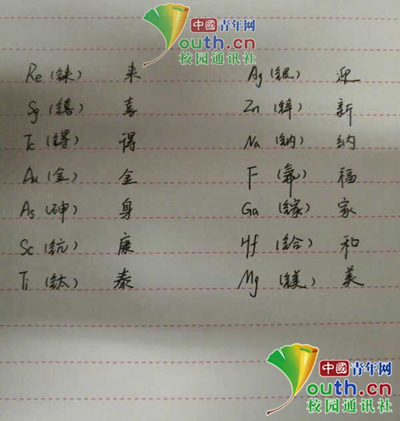 中國青年网
youth.cn
校园通讯社
Re (铼) 来 Ag (银) 迎
Sg (𬭳) 喜 Zn (锌) 新
Tc (锝) 得 Na (钠) 纳
Au (金) 金 F (氟) 福
As (砷) 身 Ga (镓) 家
Sc (钪) 康 Hf (铪) 和
Ti (钛) 泰 Mg (镁) 美
中國青年网
youth.cn
校园通讯社